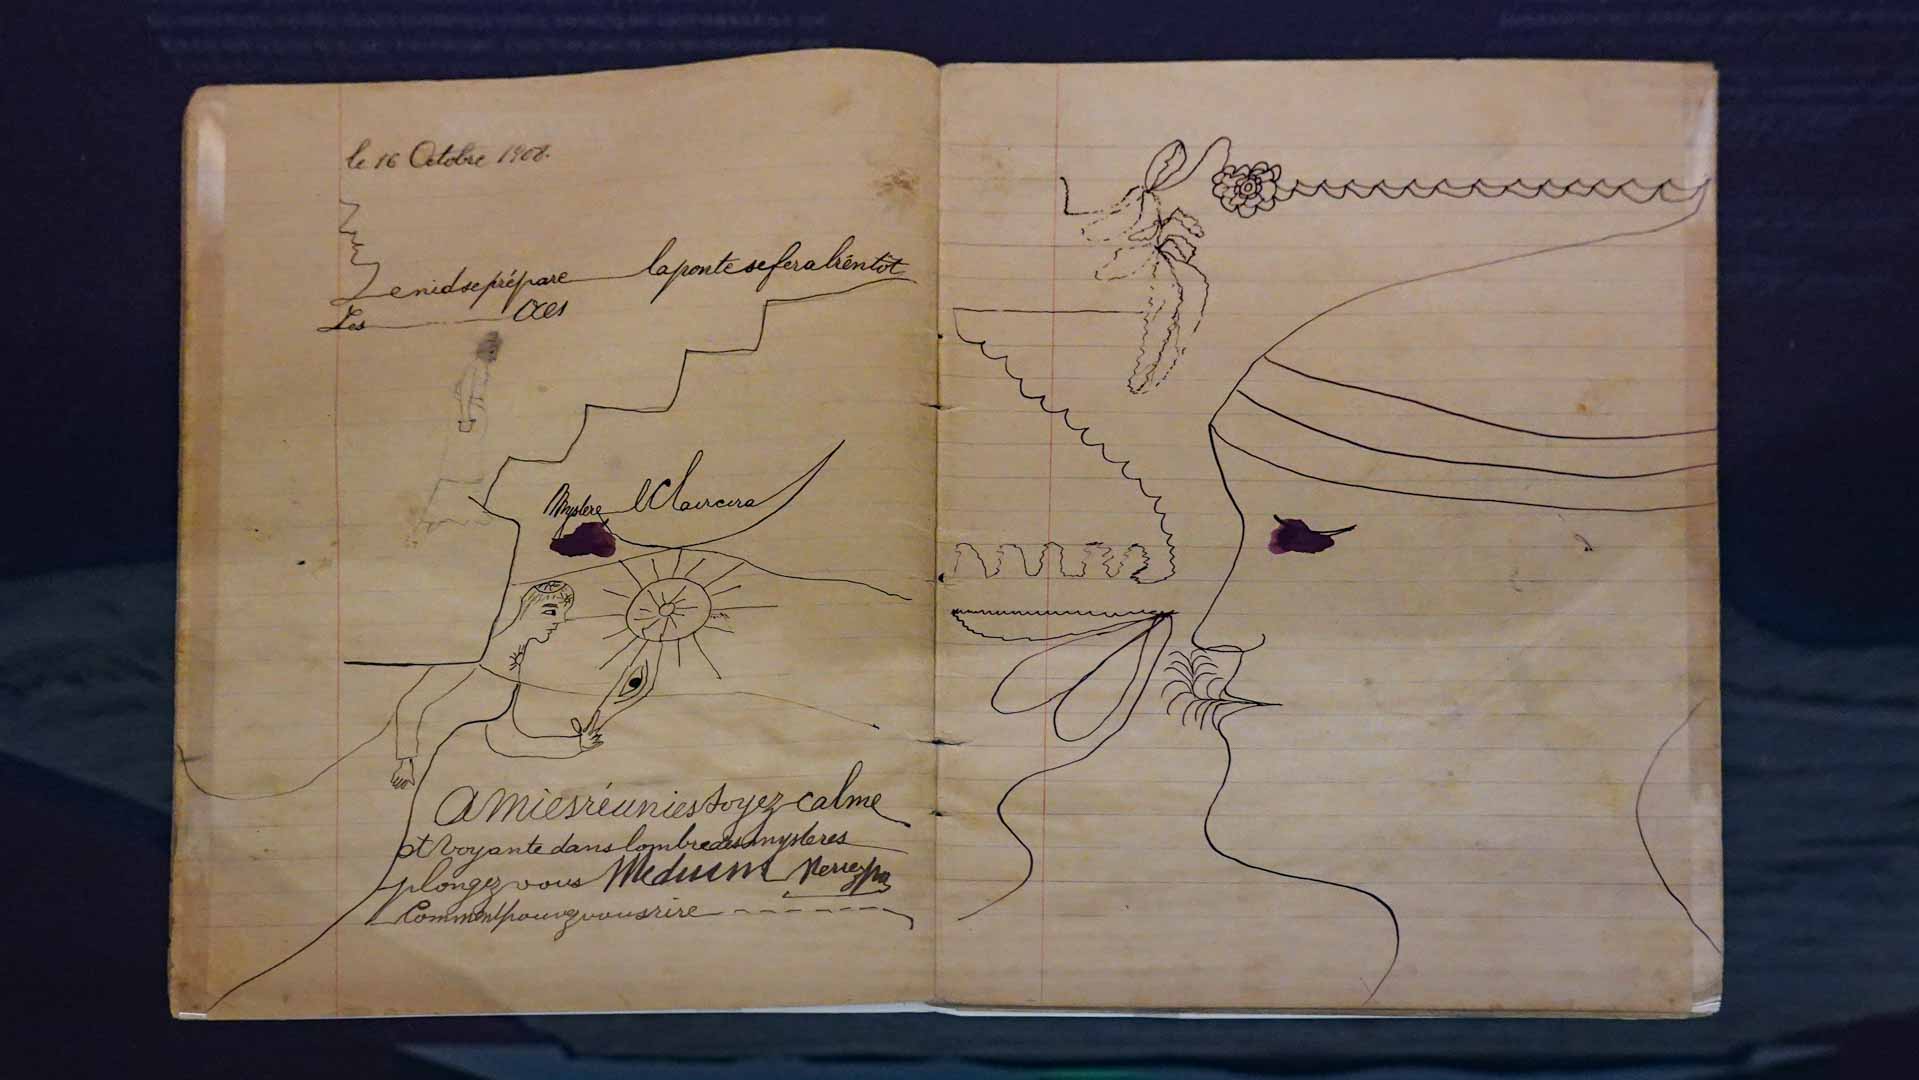 le 16 Octobre 1908.
Lenidseprépare laponteseferabientôt
Les
Mystere
Amiesréuniessoyez calme
et voyante dans lombredesmysteres
plongez vous Medium
Commentpouvezvousrire